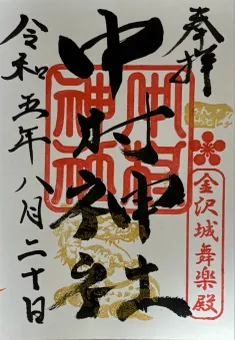 奉拝
金沢城舞楽殿
中村神社
中村神社
令和五年八月二十日